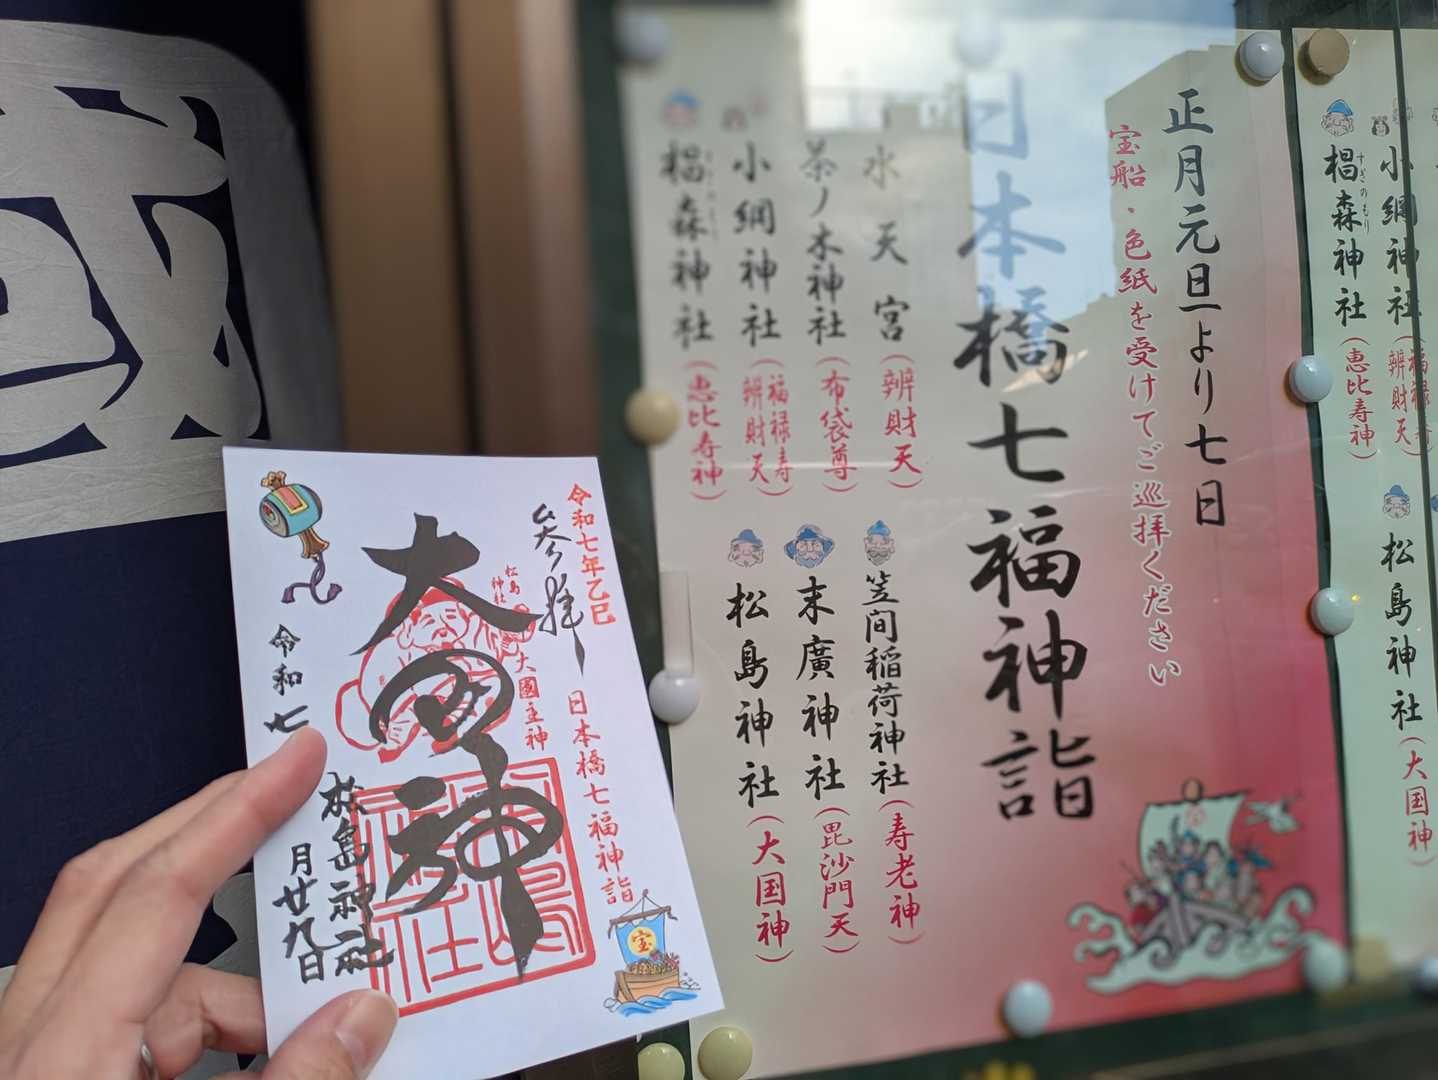 正月元旦より七日
宝船・色紙を受けてご巡拝ください
日本橋七福神詣
水天宮(辨財天)
茶ノ木神社(布袋尊)
小網神社(福禄寿
辨財天)
椙森神社(恵比寿神)
笠間稲荷神社(寿老神)
末廣神社(毘沙門天)
松島神社(大国神)
小網神社(福禄
辨財天
椙森神社(恵比寿神)
すぎのもり
松島神社(大国神)
令和七年乙巳
参拝
日本橋七福神詣
松島
神社
大國主神
大国神
宝
令和七
月廿九日
松島神社